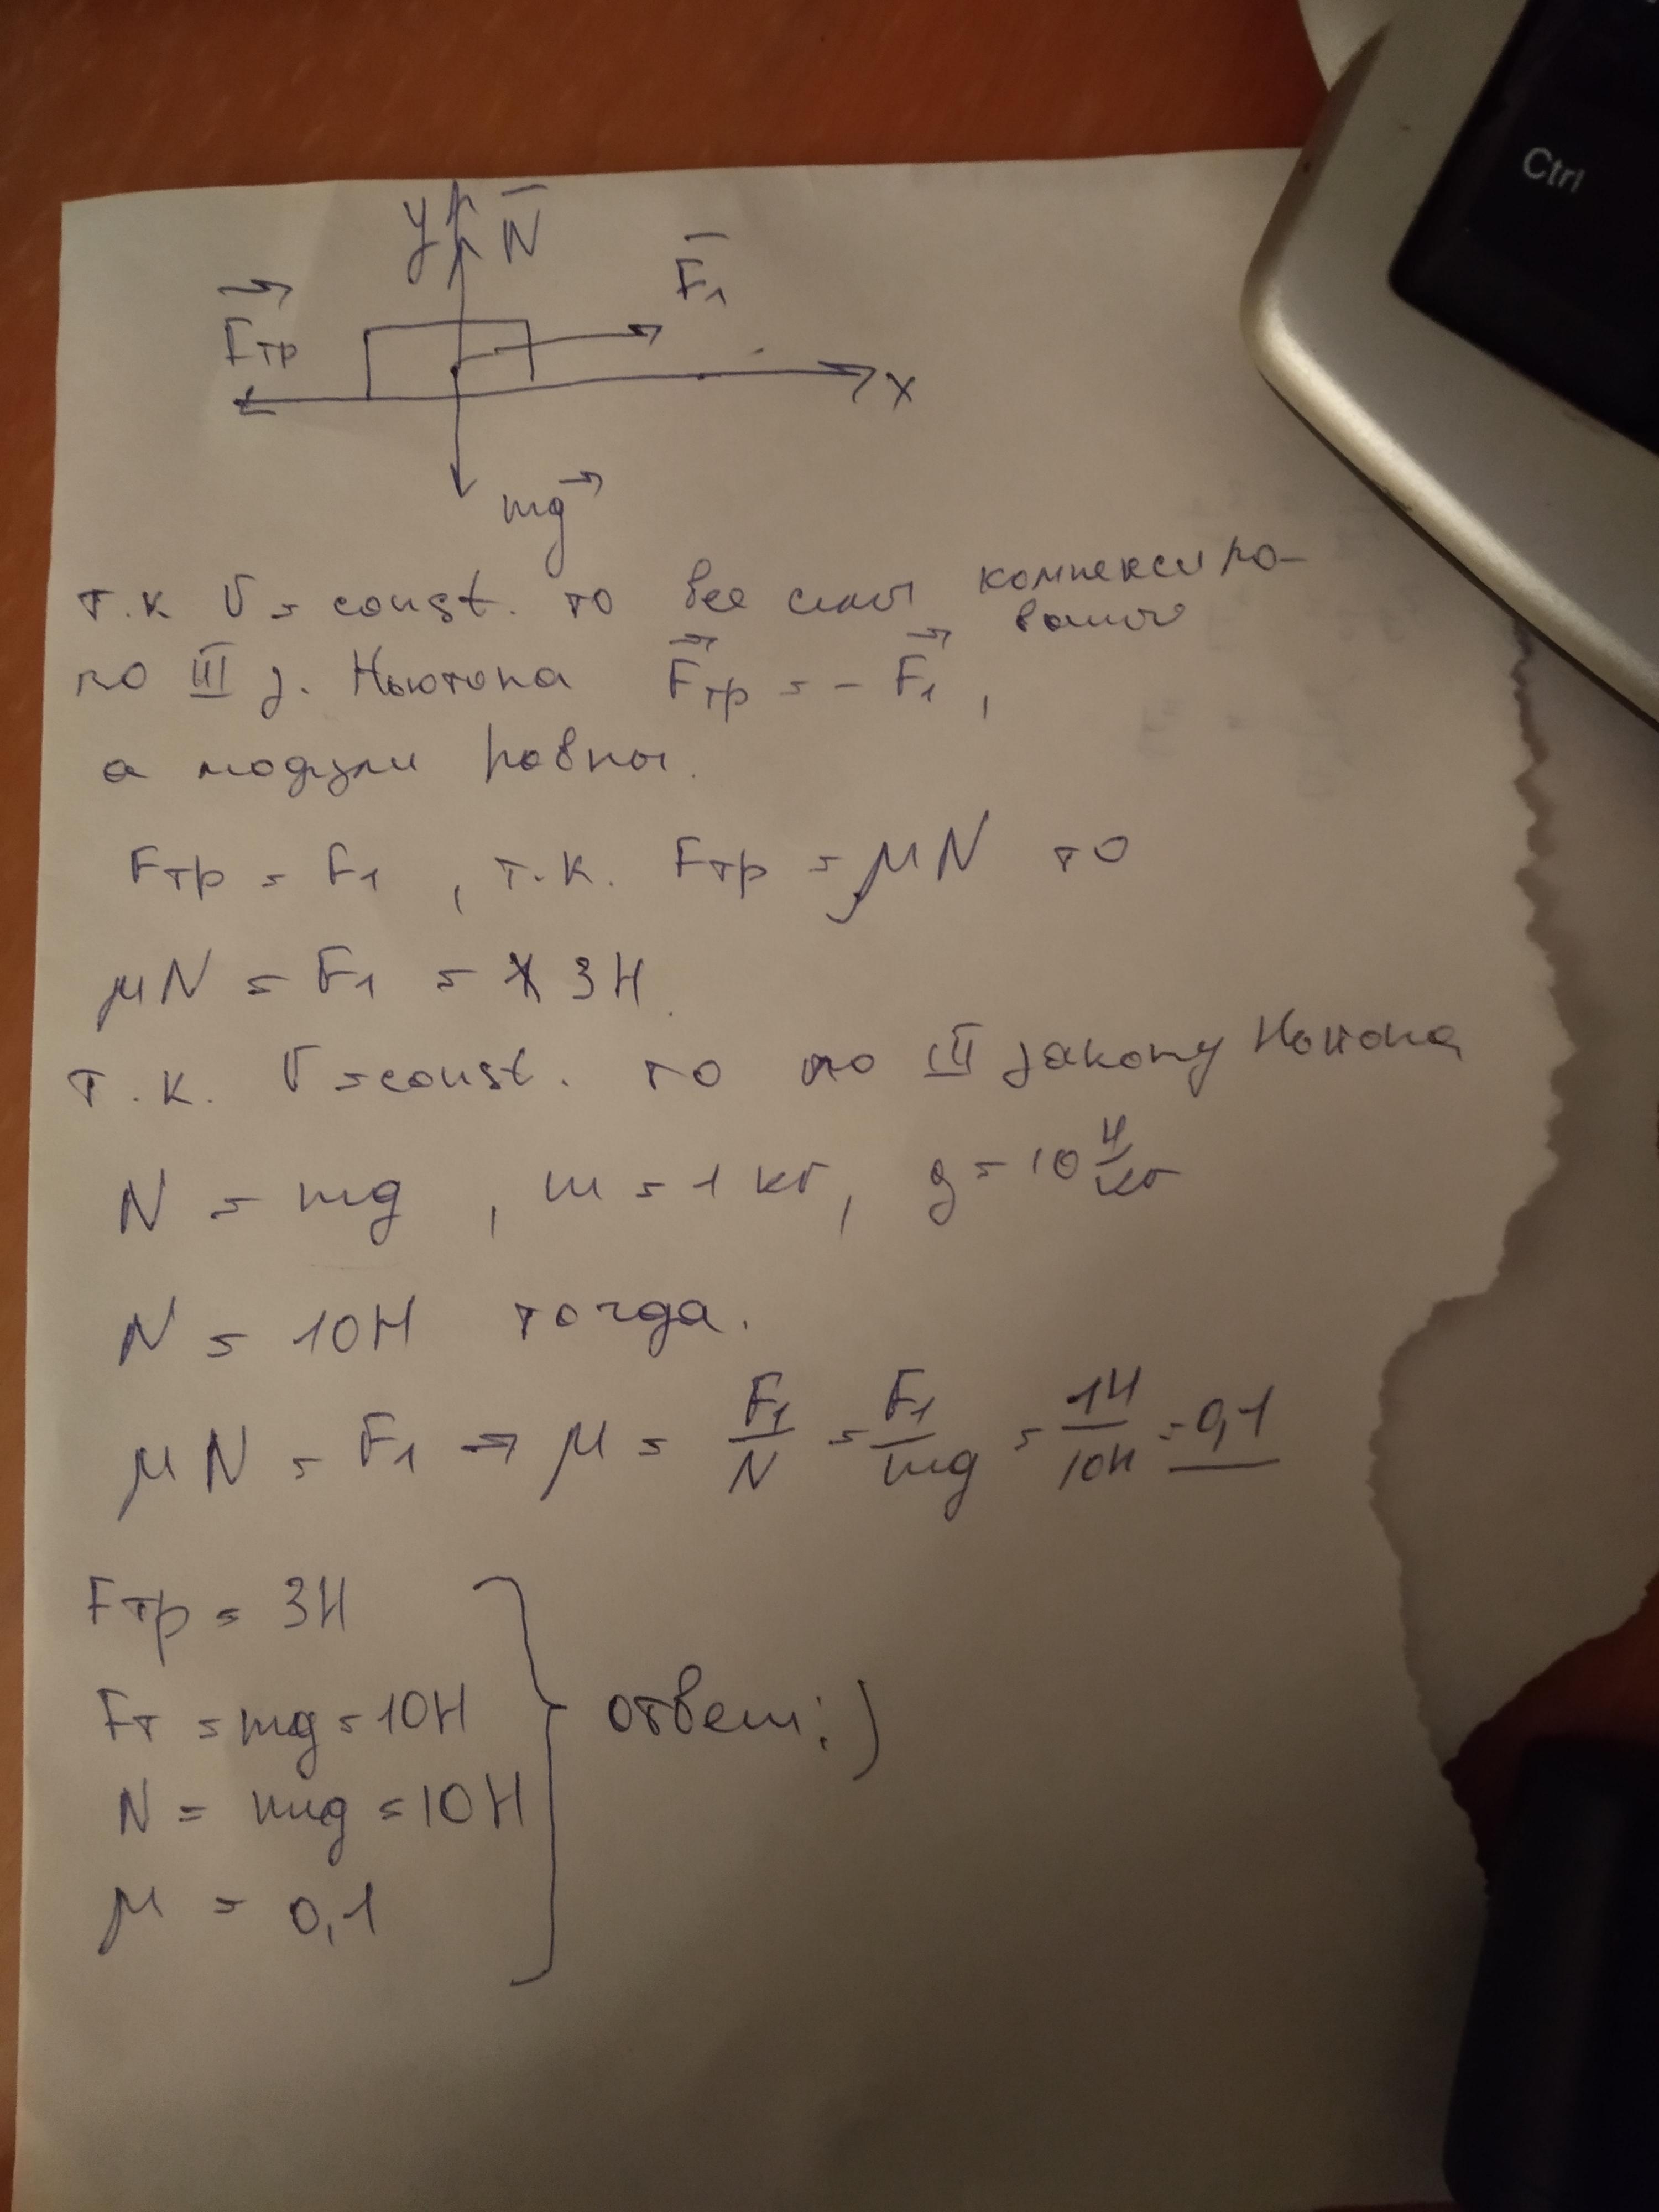 Ctrl
y N
F₁
Fтр
x
mg
т.к V = const. то все силы компенсиро-
ваны
по III з. Ньютона Fтр = - F₁,
а модули равны.
Fтр = F₁, т.к. Fтр = μN то
μN = F₁ = 3Н.
т.к. V = const. то по III закону Ньютона
N = mg, m = 1 кг, g = 10 Н/кг
N = 10Н тогда.
μN = F₁ → μ = F₁/N = F₁/mg = 1Н/10Н = 0,1
Fтр = 3Н
Fт = mg = 10Н
ответ:)
N = mg = 10Н
μ = 0,1